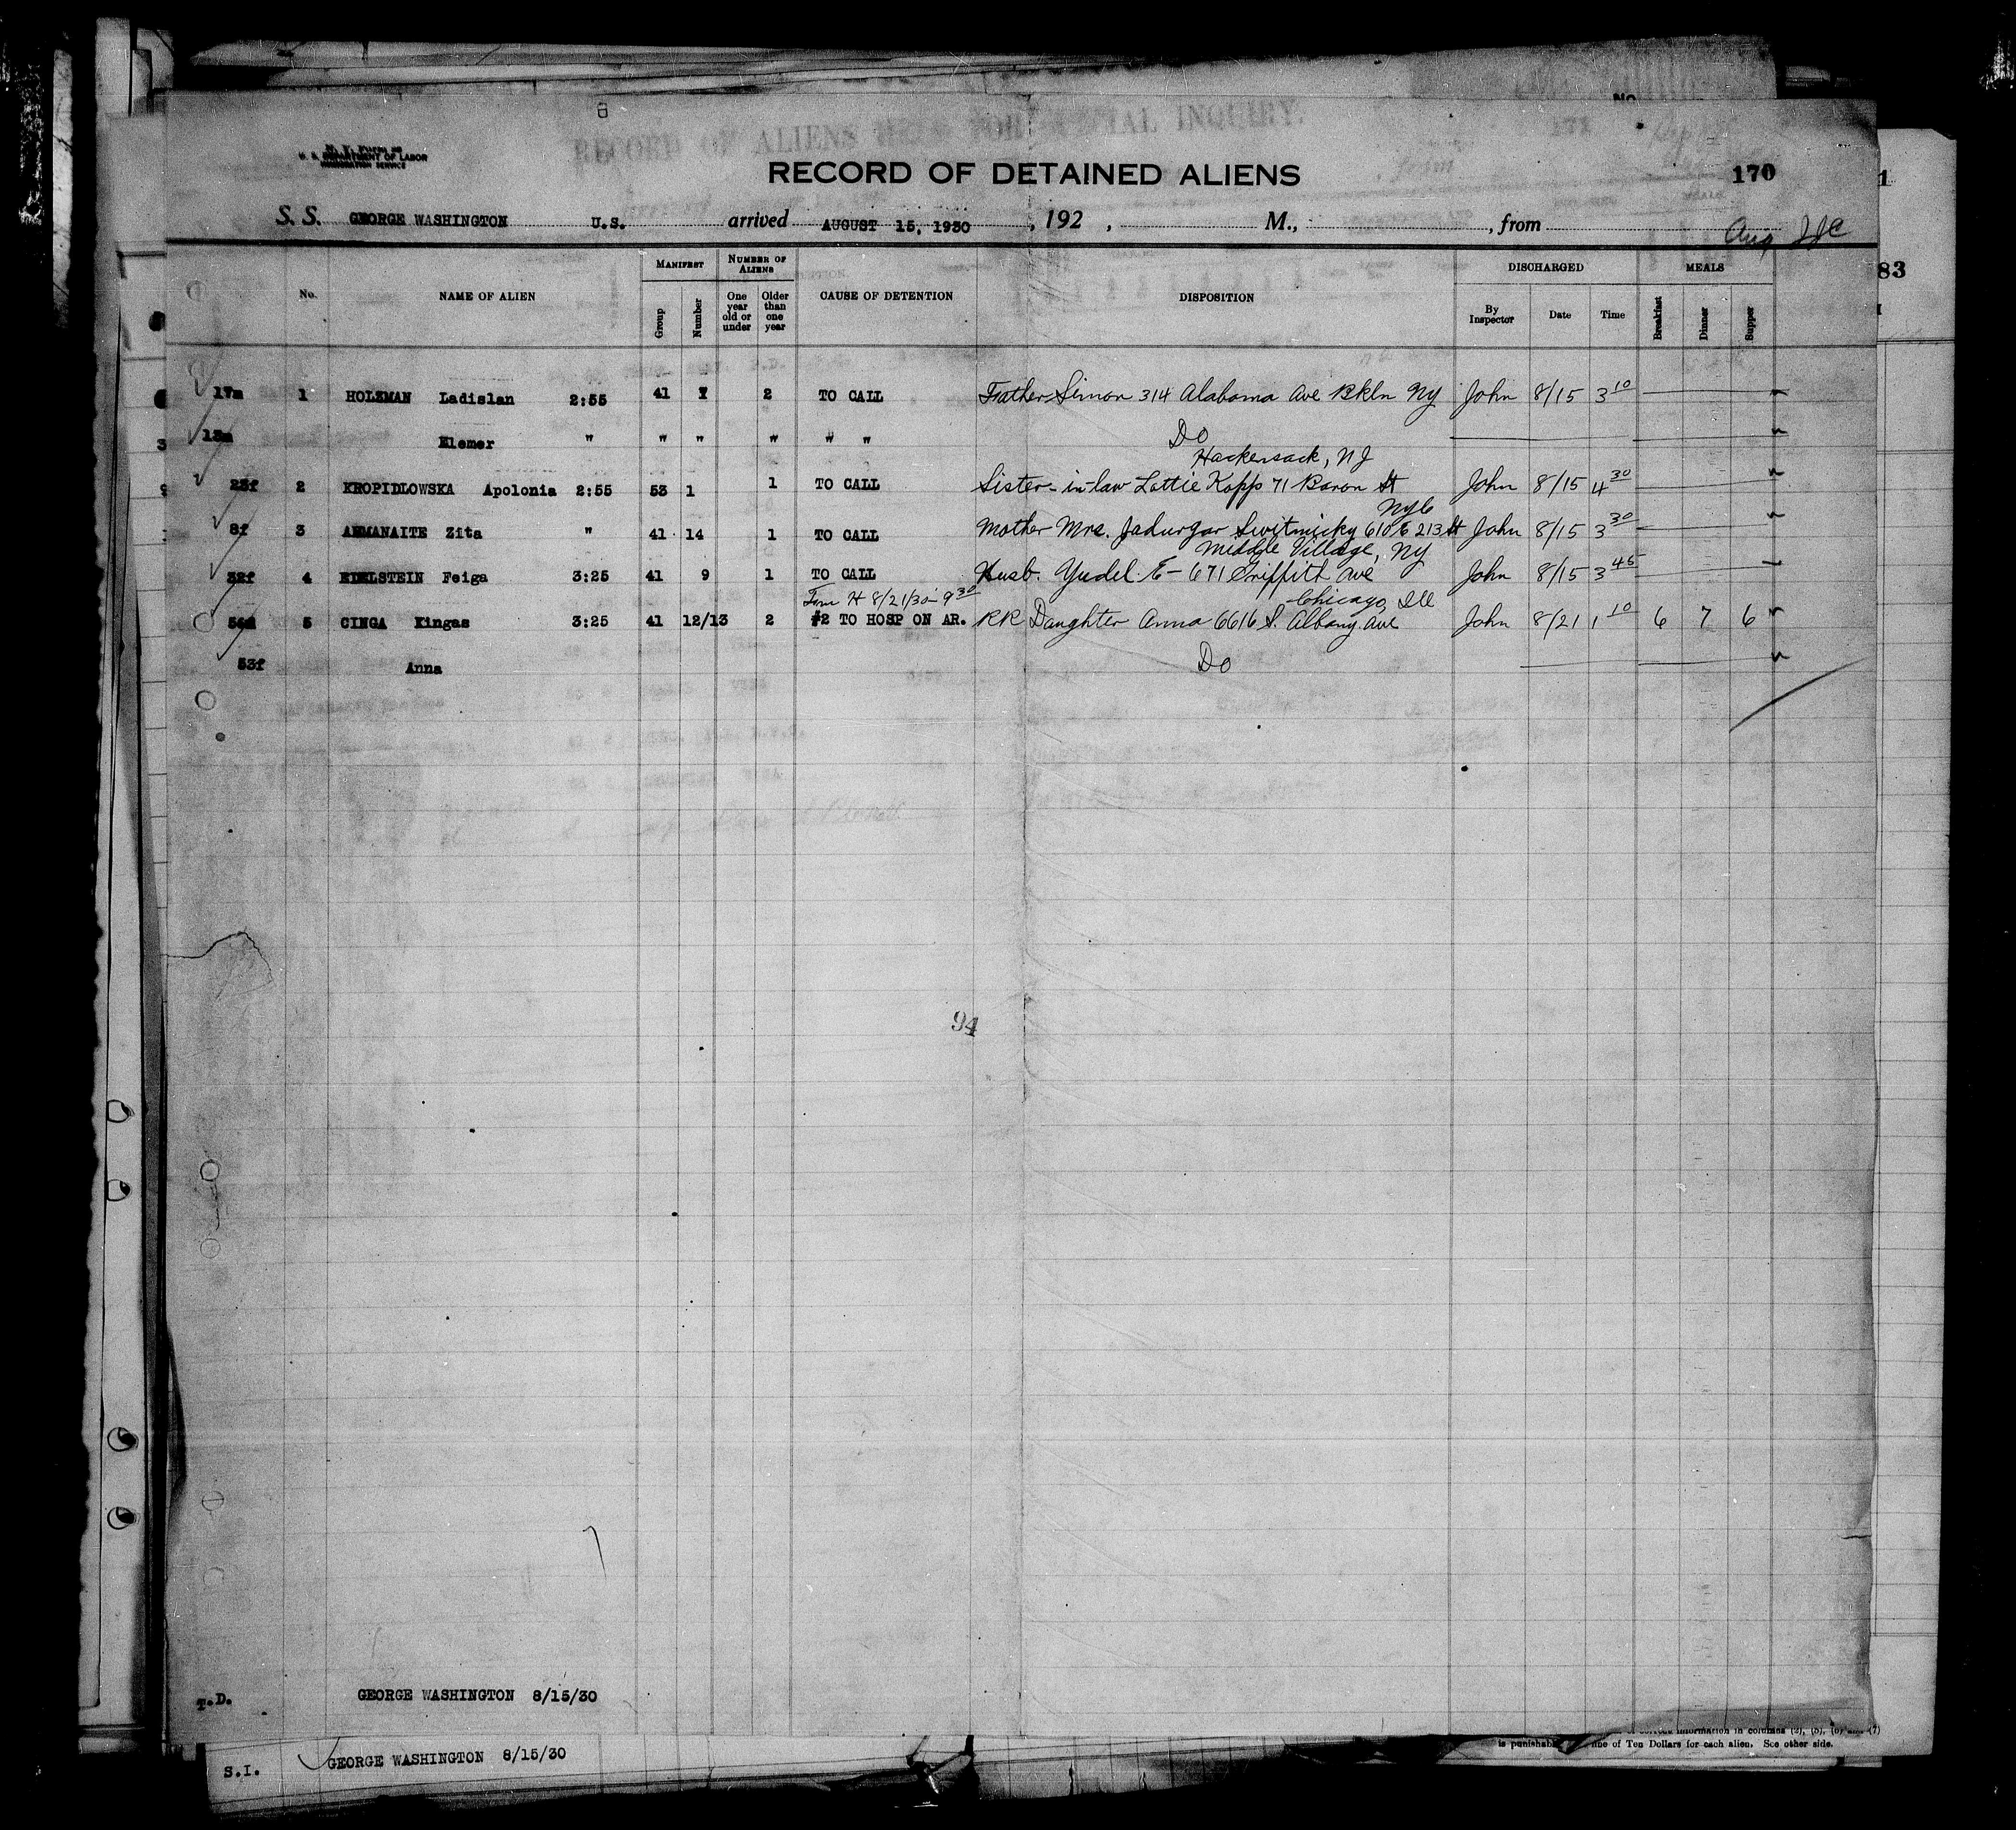 RECORD OF ALIENS HELD FOR SPECIAL INQUIRY.
171
NO
U. S. DEPARTMENT OF LABOR
IMMIGRATION SERVICE
RECORD OF DETAINED ALIENS
170
S. S. GEORGE WASHINGTON U.S. arrived AUGUST 15, 1930 , 192 , M., , from
Aug
MANIFEST NUMBER OF ALIENS DISCHARGED MEALS
No. NAME OF ALIEN Group Number One year old or under Older than one year CAUSE OF DETENTION DISPOSITION By Inspector Date Time Breakfast Dinner Supper
17m 1 HOLZMAN Ladislan 2:55 41 7 2 TO CALL Father Simon 314 Alabama Ave Bkln NY John 8/15 3 10
13m Elemer " " " " " " Do
Hackensack, NJ
23f 2 KROPIDLOWSKA Apolonia 2:55 53 1 1 TO CALL Sister-in-law Lottie Kopp 71 Baron St John 8/15 4 30
NYC
8f 3 AEMANAITE Zita " 41 14 1 TO CALL Mother Mrs. Jadurgar Switnicky 610 E 213 St John 8/15 3 30
Middle Village, NY
32f 4 EDELSTEIN Feiga 3:25 41 9 1 TO CALL Husb. Yudel E - 671 Griffith Ave John 8/15 3 45
Fm H 8/21/30 - 9 30 Chicago, Ill
56m 5 CINGA Kingas 3:25 41 12/13 2 #2 TO HOSP ON AR. RR Daughter Anna 6616 S. Albany Ave John 8/21 1 10 6 7 6
53f Anna Do
94
T.D. GEORGE WASHINGTON 8/15/30
S.I. GEORGE WASHINGTON 8/15/30
correct information in columns (2), (5), (6) and (7)
is punishable fine of Ten Dollars for each alien. See other side.
1
83